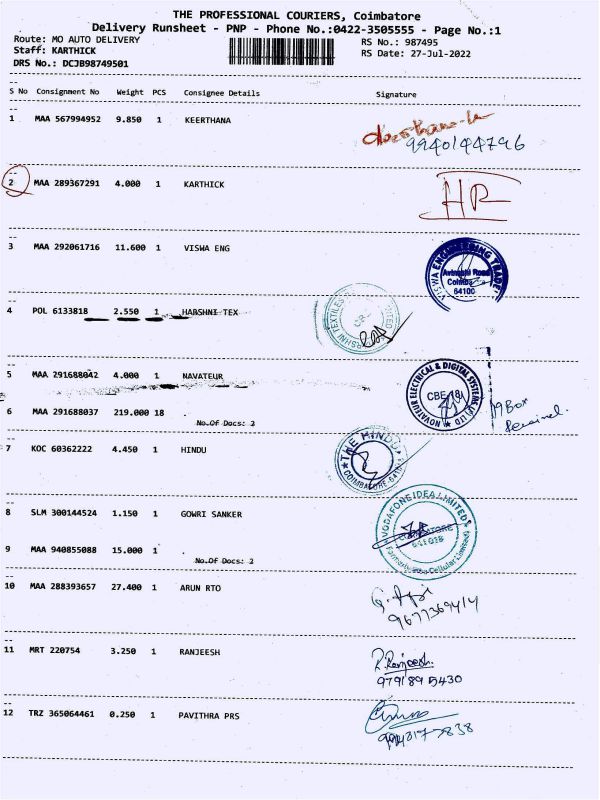 THE PROFESSIONAL COURIERS, Coimbatore
Delivery Runsheet - PNP - Phone No.:0422-3505555 - Page No.:1
Route: MO AUTO DELIVERY
RS No.: 987495
Staff: KARTHICK
RS Date: 27-Jul-2022
DRS No.: DCJB98749501
S No Consignment No Weight PCS Consignee Details Signature
1 MAA 567994952 9.850 1 KEERTHANA
9940144796
2 MAA 289367291 4.000 1 KARTHICK
HR
3 MAA 292061716 11.600 1 VISWA ENG
VISWA ENGINEERING TRADE
Avinashi Road
64100
4 POL 6133818 2.550 1 HARSHNI TEX
5 MAA 291688042 4.000 1 NAVATEUR
NOVATEUR ELECTRICAL & DIGITAL SYSTEMS (P) LTD
CBE-18
19 Box
Received.
6 MAA 291688037 219.000 18
No.Of Docs: 2
7 KOC 60362222 4.450 1 HINDU
THE HINDU
COIMBATORE-641
8 SLM 300144524 1.150 1 GOWRI SANKER
VODAFONE IDEA LIMITED
COIMBATORE
641018
9 MAA 940855088 15.000 1
No.Of Docs: 2
10 MAA 288393657 27.400 1 ARUN RTO
9677369414
11 MRT 220754 3.250 1 RANJEESH
R. Ranjeesh.
9791895430
12 TRZ 365064461 0.250 1 PAVITHRA PRS